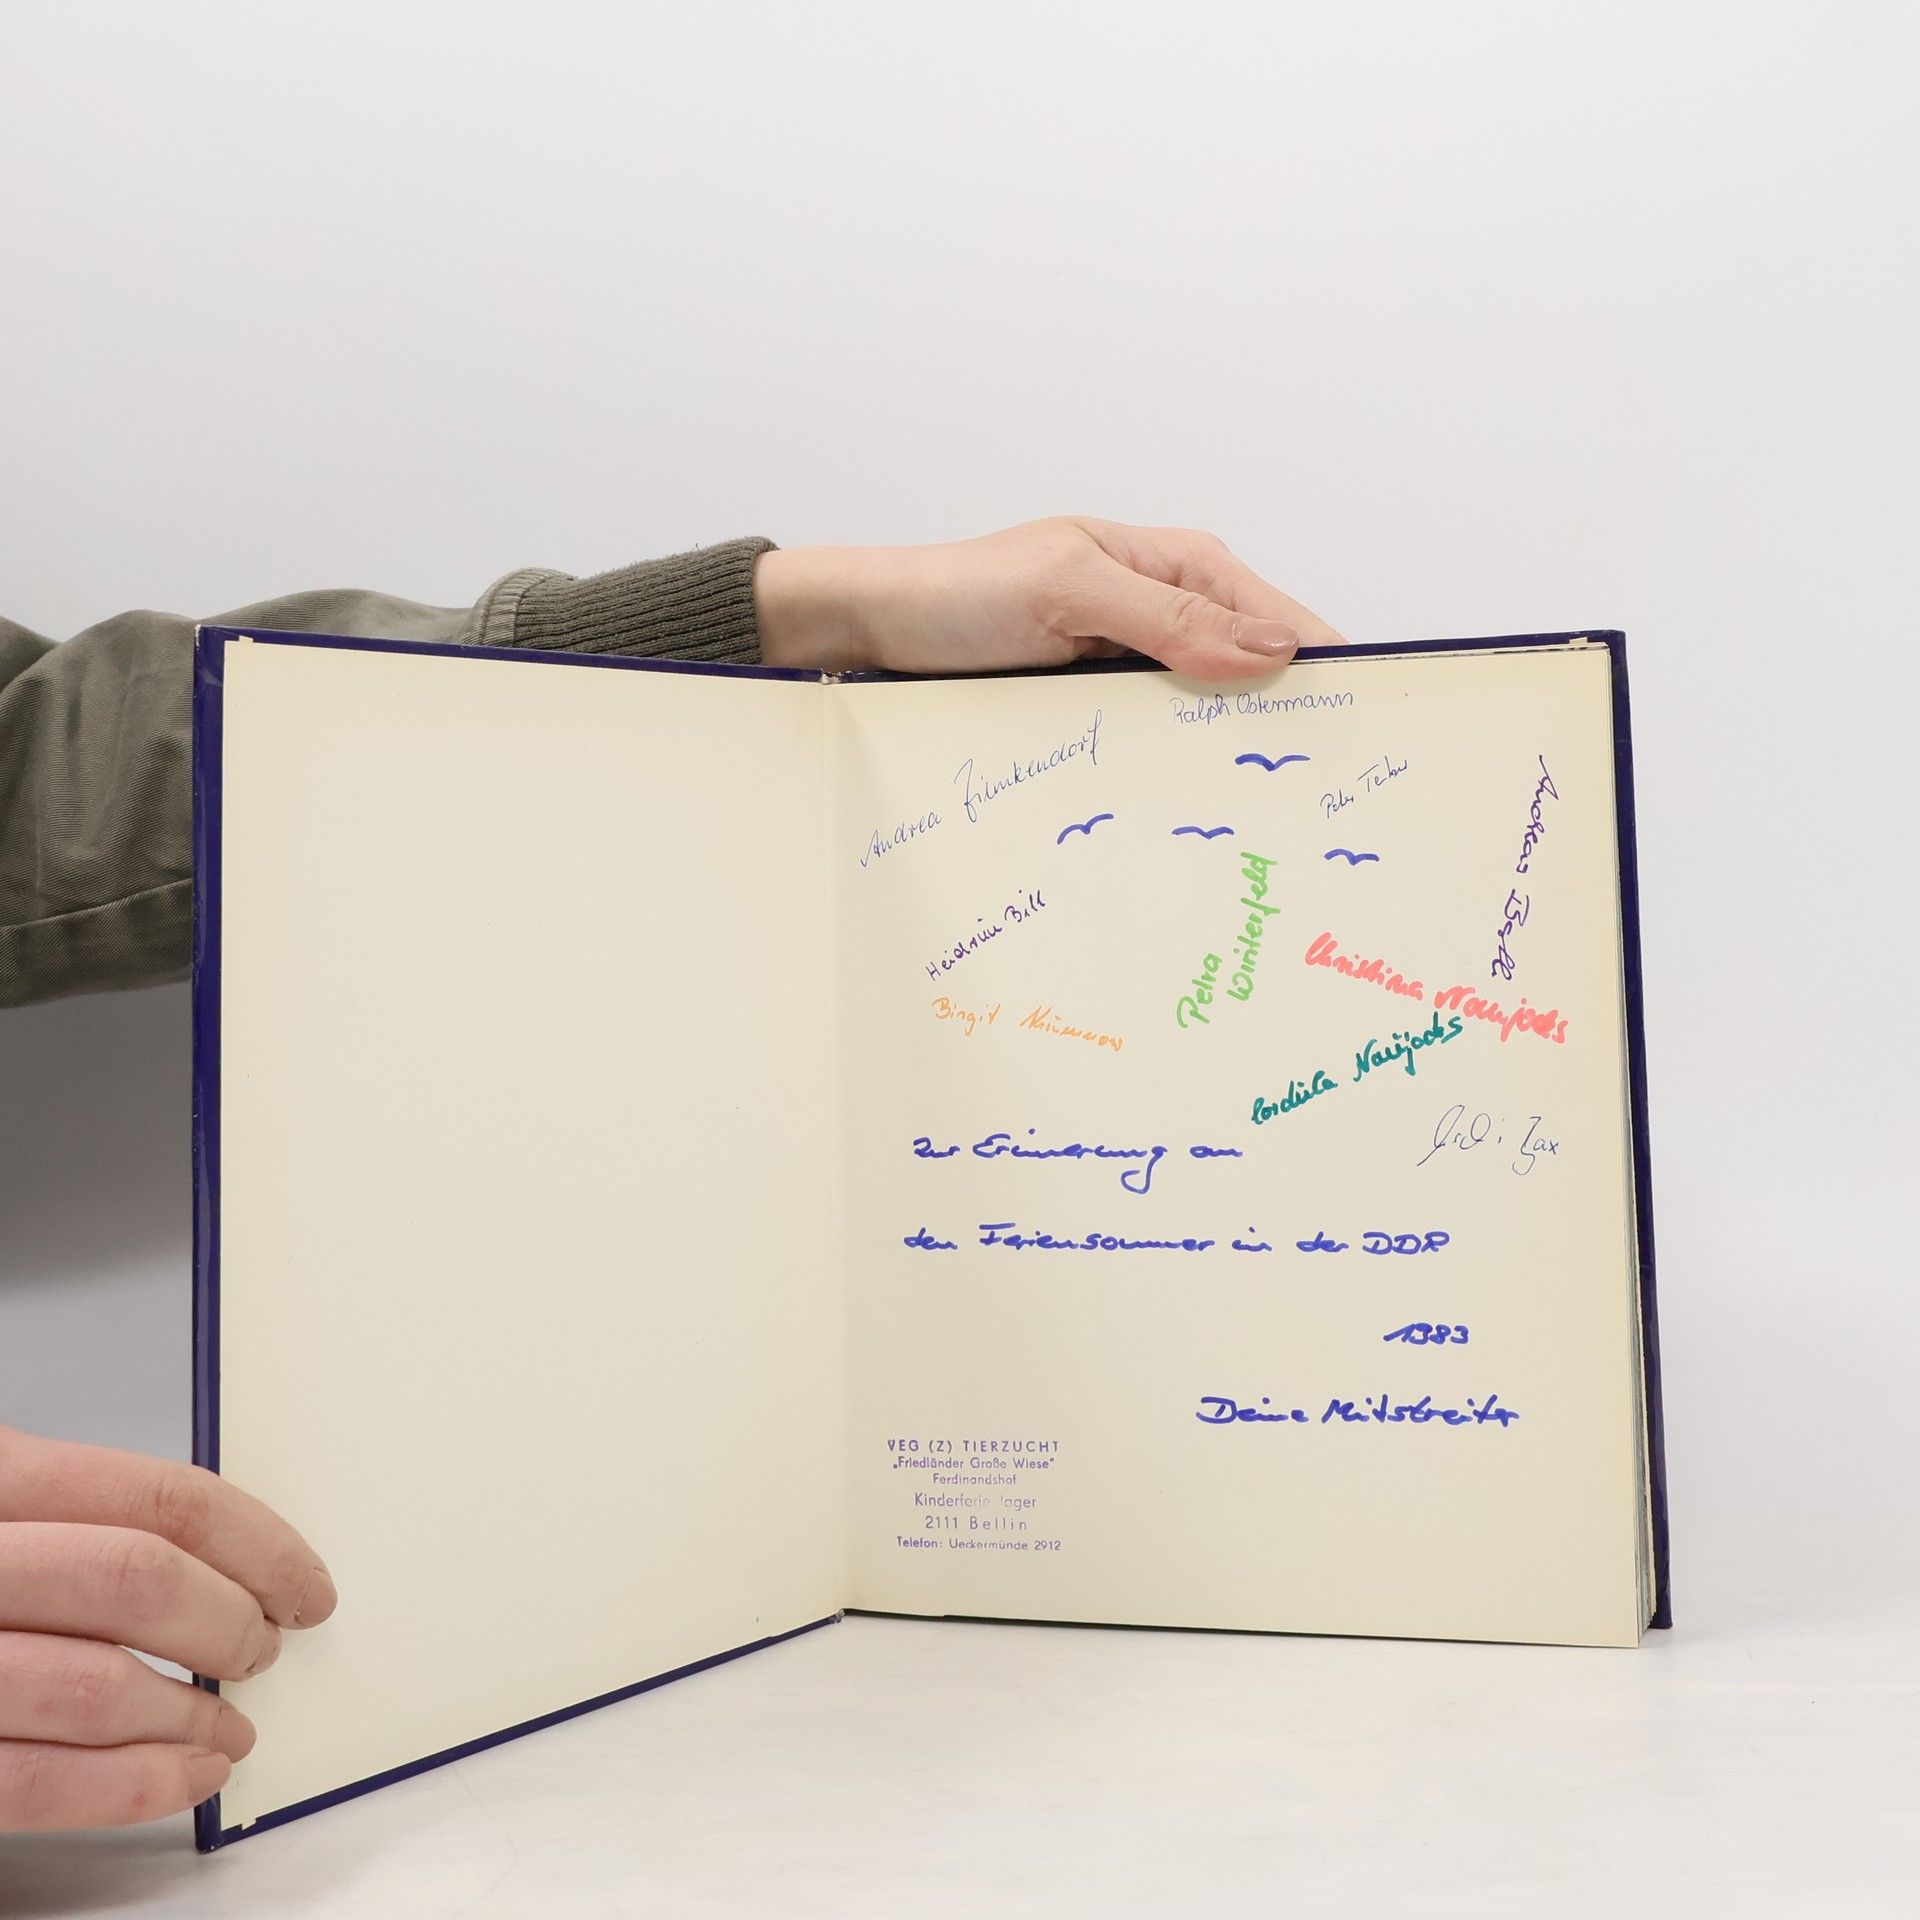 Ralph Ostermann
Andrea Zimkendorf
Peter
Andreas
Heidrun Bill
Petra
Winterfeld
Christina Naujocks
Birgit Krümmow
Cordula Naujocks
Zax
zur Erinnerung an
den Feriensommer in der DDR
1983
Deine Mitstreiter
VEG (Z) TIERZUCHT
„Friedländer Große Wiese"
Ferdinandshof
Kinderferie lager
2111 Bellin
Telefon: Ueckermünde 2912